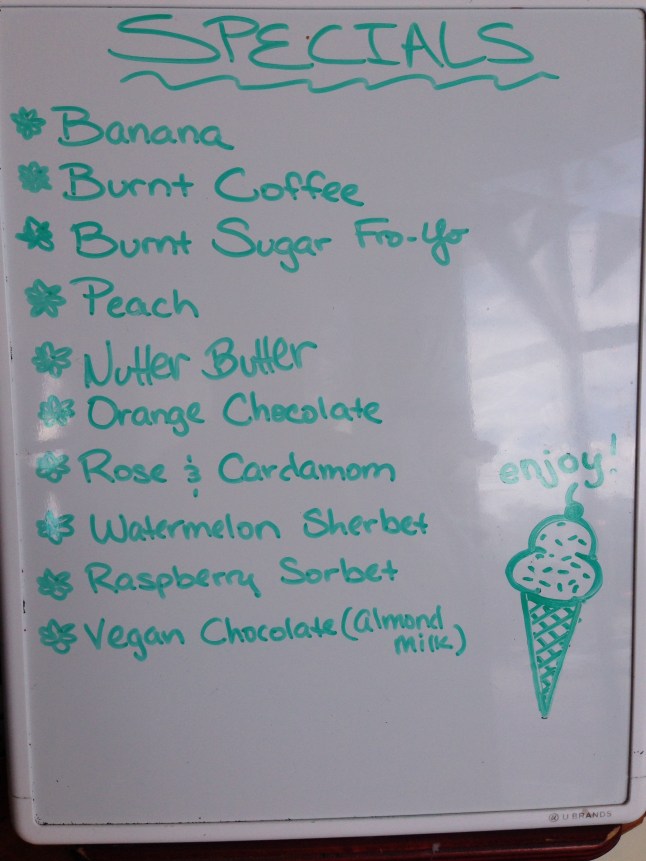 SPECIALS
Banana
Burnt Coffee
Burnt Sugar Fro-Yo
Peach
Nutter Butter
Orange Chocolate
Rose & Cardamom
Watermelon Sherbet
Raspberry Sorbet
Vegan Chocolate (almond
milk)
enjoy!
U BRANDS